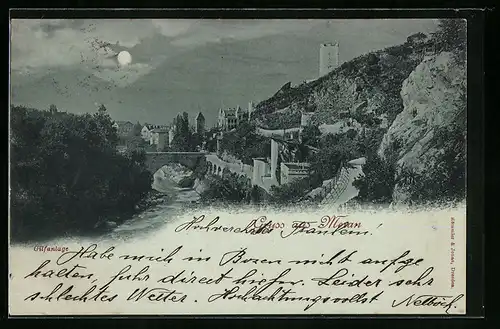 Gruss aus Meran
Gilfanlage
Hochverehrtes Fräulein!
Habe mich in Bozen nicht aufge
halten, fuhr direct hieher. Leider sehr
schlechtes Wetter. Hochachtungsvollst
Stengel & Co., Dresden